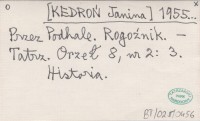 O
[KEDROŃ Janina] 1955...
Przez Podhale. Rogoźnik. –
Tatrz. Orzeł 8, nr 2: 3.
Historia.
BT/02